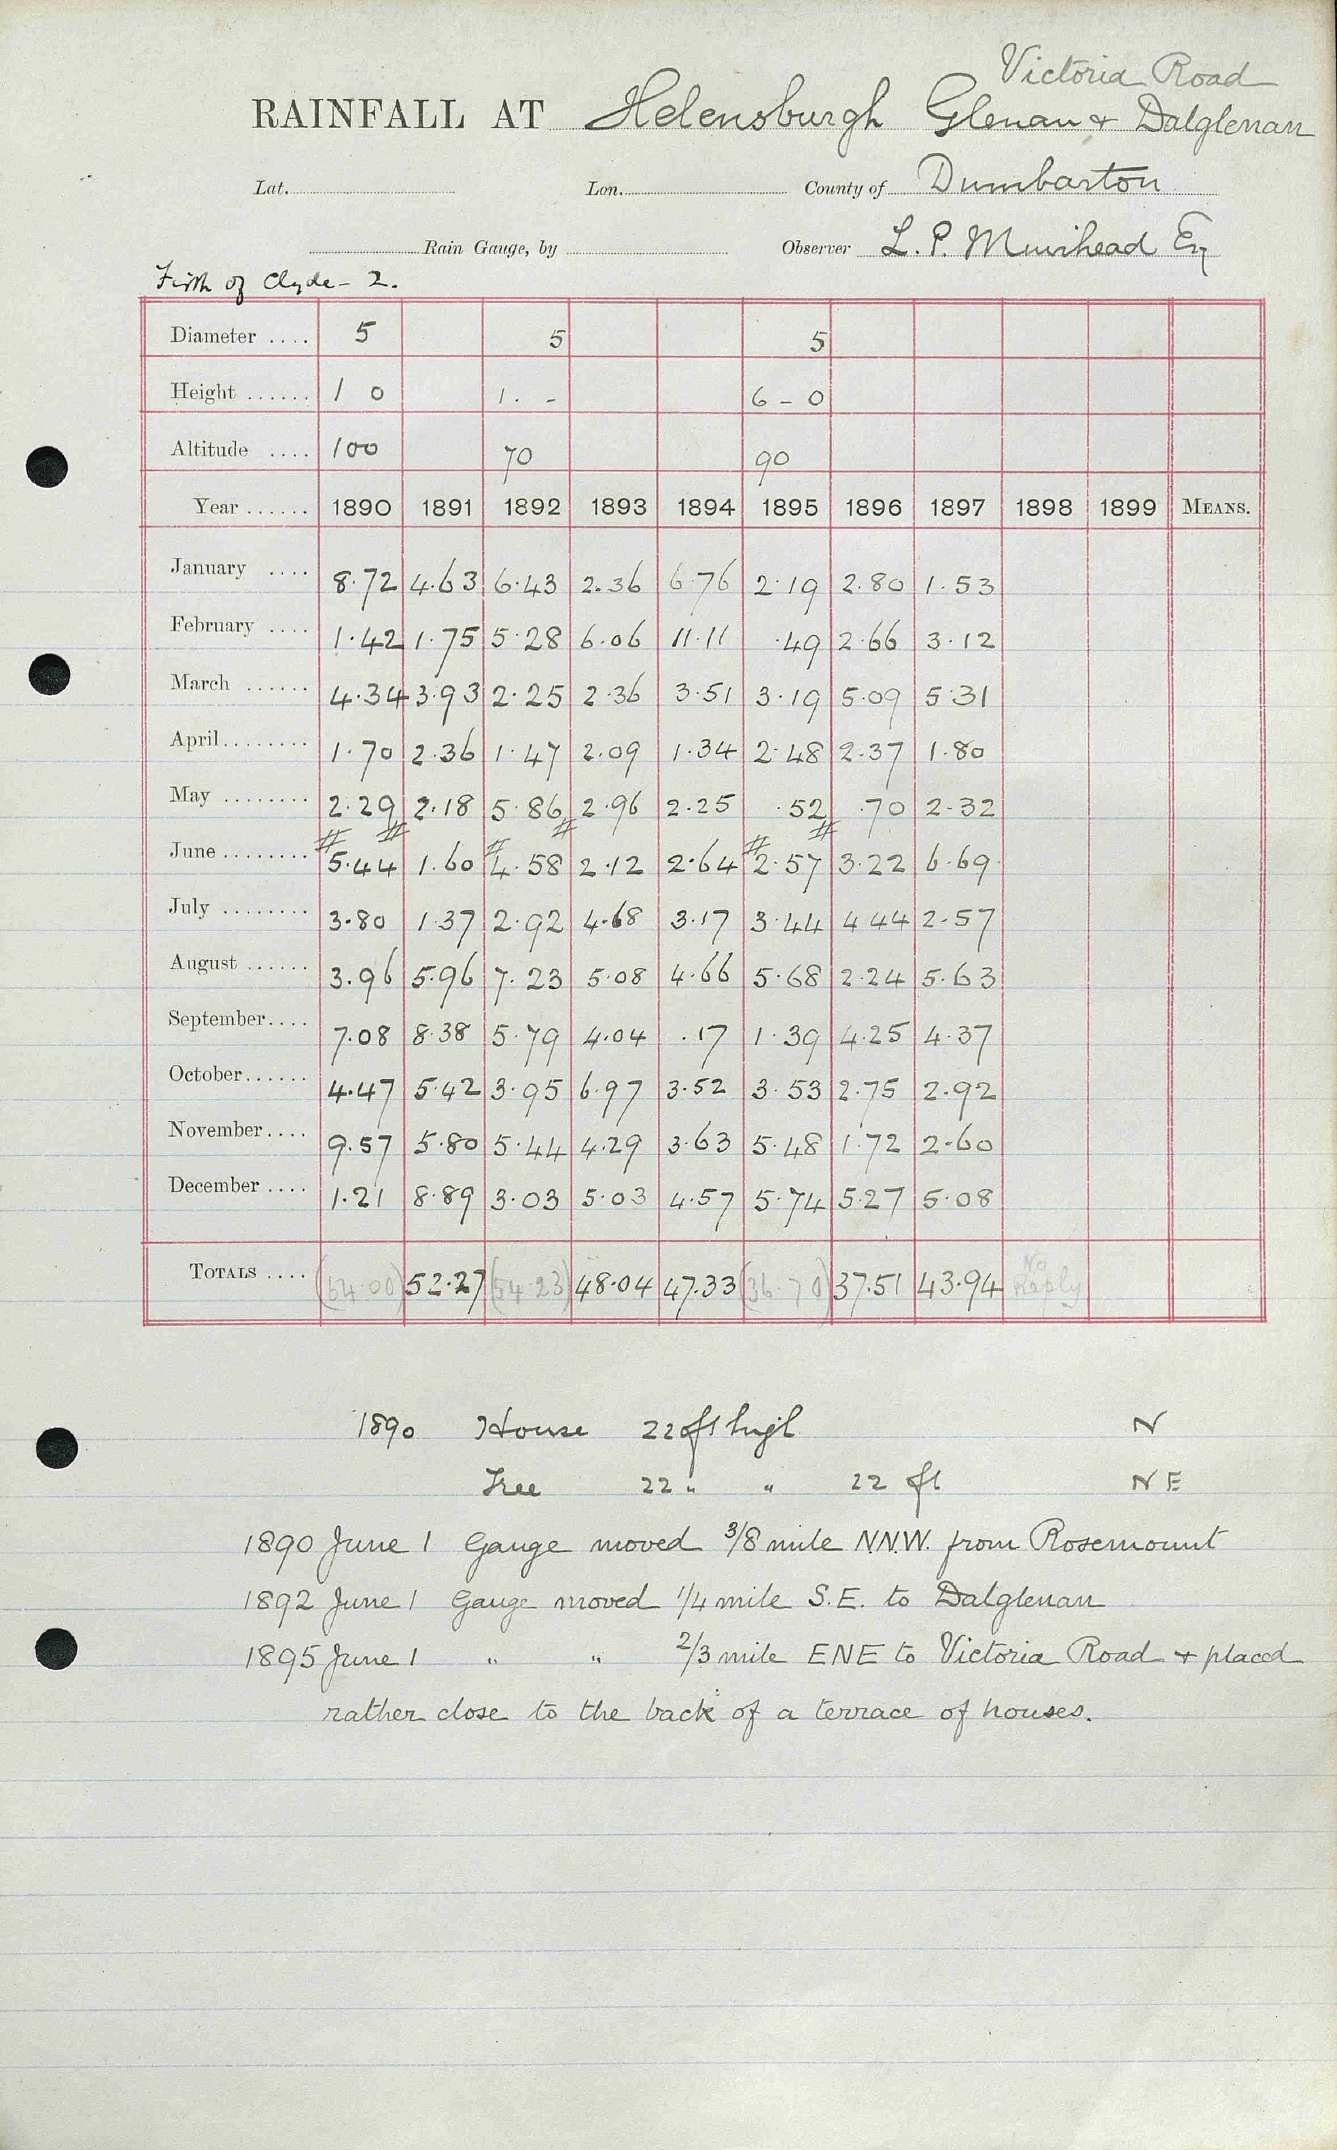 Victoria Road
RAINFALL AT Helensburgh Glenan & Dalglenan
Lat. Lon. County of Dumbarton
Rain Gauge, by Observer L. P. Muirhead Esq
Firth of Clyde - 2.
Diameter .... 5 5 5
Height ...... 1 0 1. - 6 - 0
Altitude .... 100 70 90
Year ...... 1890 1891 1892 1893 1894 1895 1896 1897 1898 1899 MEANS.
January .... 8.72 4.63 6.43 2.36 6.76 2.19 2.80 1.53
February .... 1.42 1.75 5.28 6.06 11.11 .49 2.66 3.12
March ...... 4.34 3.93 2.25 2.36 3.51 3.19 5.09 5.31
April........ 1.70 2.36 1.47 2.09 1.34 2.48 2.37 1.80
May ........ 2.29 2.18 5.86 2.96 2.25 .52 .70 2.32
June ........ # 5.44 # 1.60 # 4.58 # 2.12 2.64 # 2.57 # 3.22 6.69
July ........ 3.80 1.37 2.92 4.68 3.17 3.44 4.44 2.57
August ...... 3.96 5.96 7.23 5.08 4.66 5.68 2.24 5.63
September.... 7.08 8.38 5.79 4.04 .17 1.39 4.25 4.37
October...... 4.47 5.42 3.95 6.97 3.52 3.53 2.75 2.92
November.... 9.57 5.80 5.44 4.29 3.63 5.48 1.72 2.60
December .... 1.21 8.89 3.03 5.03 4.57 5.74 5.27 5.08
TOTALS .... (54.00) 52.27 (54.23) 48.04 47.33 (36.70) 37.51 43.94 No Reply
1890 House 22 ft high N
Tree 22 " " 22 ft NE
1890 June 1 Gauge moved 3/8 mile N.N.W. from Rosemount
1892 June 1 Gauge moved 1/4 mile S.E. to Dalglenan
1895 June 1 " " 2/3 mile ENE to Victoria Road & placed
rather close to the back of a terrace of houses.